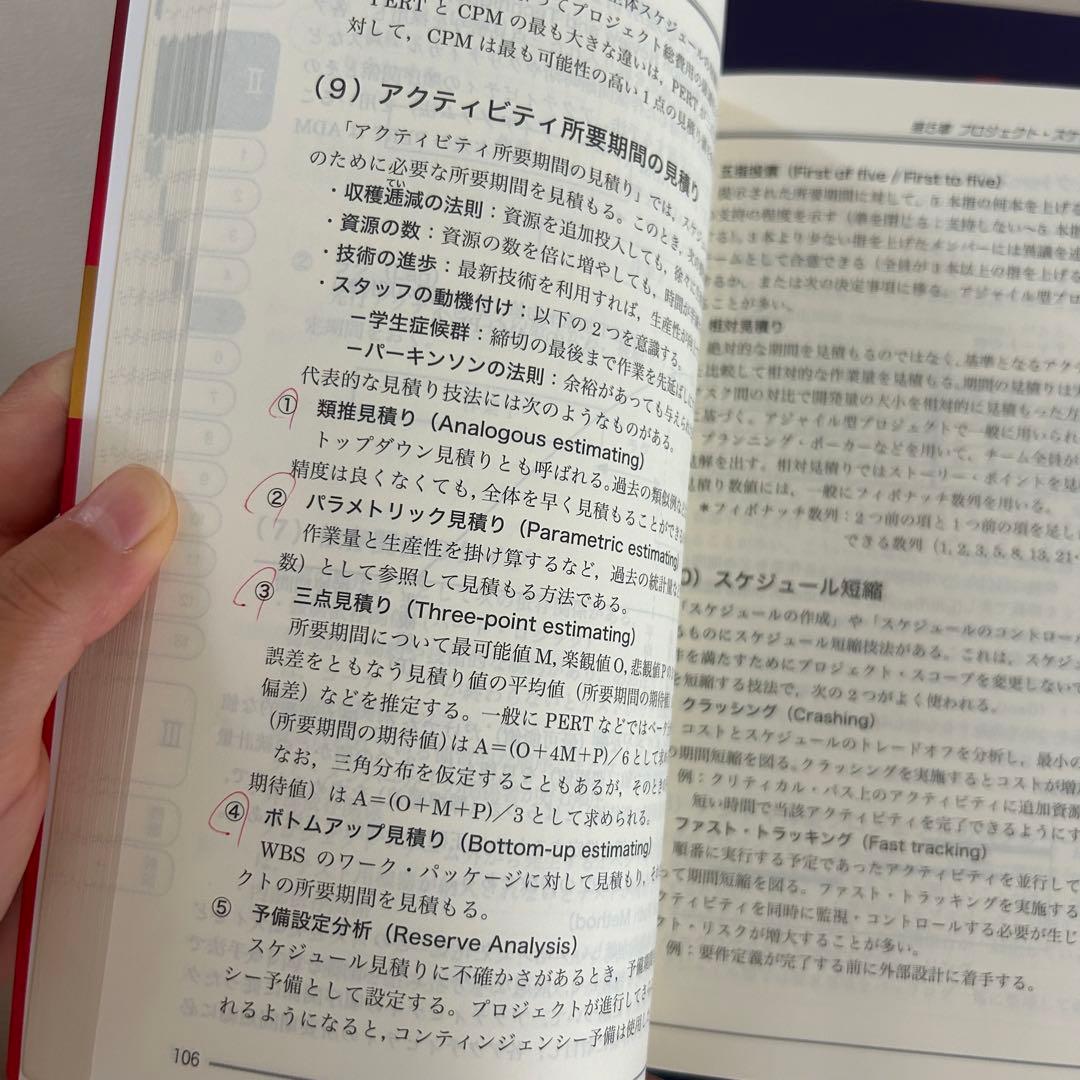 PERTとCPMの最も大きな違いは,PERTが
対して,CPMは最も可能性の高い1点の見積り
(9)アクティビティ所要期間の見積り
「アクティビティ所要期間の見積り」では,スケジュー
のために必要な所要期間を見積もる。このとき,
・収穫逓減の法則:資源を追加投入しても,徐々に
てい
・資源の数:資源の数を倍に増やしても,時間が
・技術の進歩:最新技術を利用すれば,生産性が
・スタッフの動機付け:以下の2つを意識する。
-学生症候群:締切の最後まで作業を先延ばしに
-パーキンソンの法則:余裕があっても与えられ
代表的な見積り技法には次のようなものがある。
① 類推見積り(Analogous estimating)
トップダウン見積りとも呼ばれる。過去の類似例など
精度は良くなくても,全体を早く見積もることができ
② パラメトリック見積り(Parametric estimating)
作業量と生産性を掛け算するなど,過去の統計量な
数)として参照して見積もる方法である。
③ 三点見積り(Three-point estimating)
所要期間について最可能値M,楽観値O,悲観値Pの
誤差をともなう見積り値の平均値(所要期間の期待値
偏差)などを推定する。一般にPERTなどではベータ
(所要期間の期待値)はA=(O+4M+P)/6として求め
なお,三角分布を仮定することもあるが,そのときの
期待値)はA=(O+M+P)/3として求められる。
④ ボトムアップ見積り(Bottom-up estimating)
WBSのワーク・パッケージに対して見積もり,
クトの所要期間を見積もる。
⑤ 予備設定分析(Reserve Analysis)
スケジュール見積りに不確かさがあるとき,予備
シー予備として設定する。プロジェクトが進行して
れるようになると,コンティンジェンシー予備は使用
106
II
1
2
3
4
6
7
III
第5章 プロジェクト・スケ
五指投票(First of five / First to five)
提示された所要期間に対して,5本指の何本を上げる
支持の程度を示す(拳を閉じる:支持しない~5本指
る)。3本より少ない指を上げたメンバーには異議を述
ームとして合意できる(全員が3本以上の指を上げる
るか,または次の決定事項に移る。アジャイル型プロ
ことが多い。
相対見積り
絶対的な期間を見積もるのではなく,基準となるアク
比較して相対的な作業量を見積もる。期間の見積りは
スク間の対比で開発量の大小を相対的に見積もった方
基づく。アジャイル型プロジェクトで一般に用いられ
プランニング・ポーカーなどを用いて,チーム全員が
見解を出す。相対見積りではストーリー・ポイントを見
見積り数値には,一般にフィボナッチ数列を用いる。
*フィボナッチ数列:2つ前の項と1つ前の項を足し
できる数列(1, 2, 3, 5, 8, 13, 21
0)スケジュール短縮
「スケジュールの作成」や「スケジュールのコントロール
るものにスケジュール短縮技法がある。これは,スケジュ
件を満たすためにプロジェクト・スコープを変更しないで
を短縮する技法で,次の2つがよく使われる。
クラッシング(Crashing)
コストとスケジュールのトレードオフを分析し,最小の
期間短縮を図る。クラッシングを実施するとコストが増
例:クリティカル・パス上のアクティビティに追加資源
短い時間で当該アクティビティを完了できるようにす
ファスト・トラッキング(Fast tracking)
順番に実行する予定であったアクティビティを並行して
って期間短縮を図る。ファスト・トラッキングを実施する
クティビティを同時に監視・コントロールする必要が生じ
クト・リスクが増大することが多い。
例:要件定義が完了する前に外部設計に着手する。